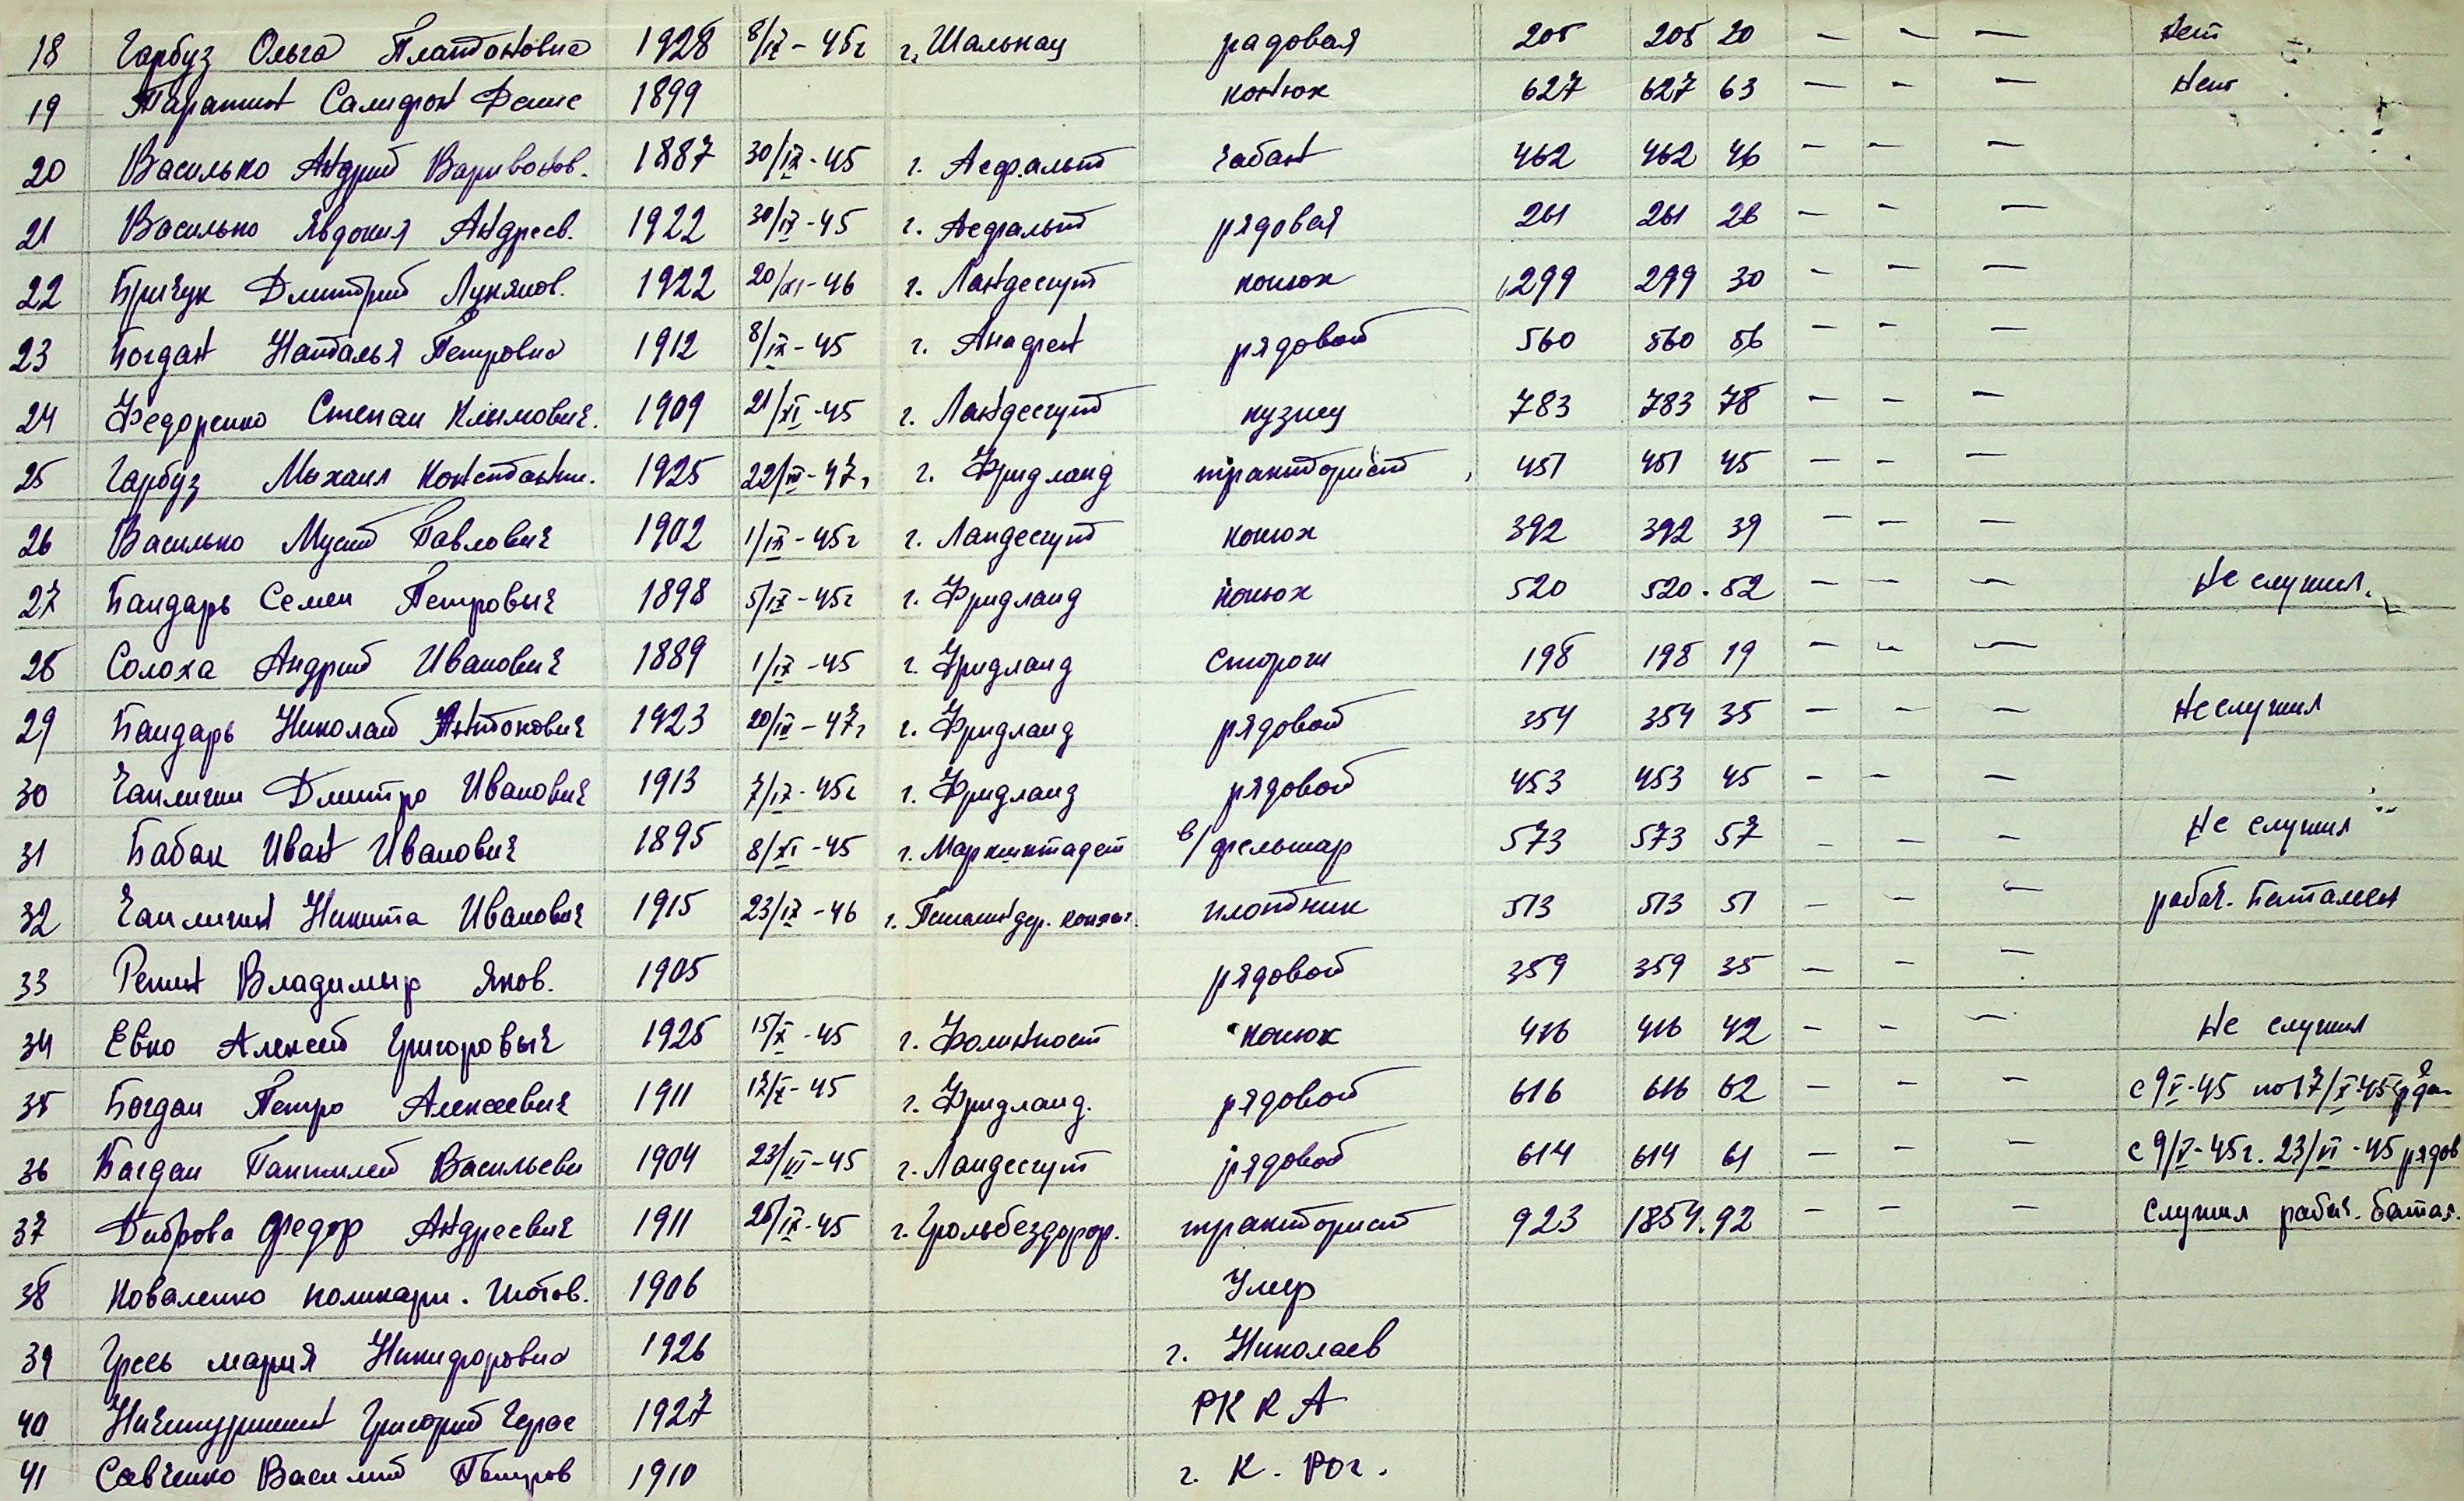 18 Гарбуз Ольга Платоновна 1928 8/IX-45г г. Шалькау радовая 205 205 20 — — — Нет
19 Салифон 1899 конюх 627 627 63 — — — Нет
20 Василько Андрий Варивонов. 1887 30/IX-45 г. Асфальт чабан 462 462 46 — — —
21 Василько Явдокия Андреев. 1922 30/IX-45 г. Асфальт рядовая 261 261 26 — — —
22 Бричук Дмитрий Лукянов. 1922 20/XI-46 г. Ландесгут конюх 299 299 30 — — —
23 Богдан Наталья Петровна 1912 8/IX-45 г. рядовой 560 560 56 — — —
24 Федоренко Степан Клымович. 1909 21/XI-45 г. Ландесгут кузнец 783 783 78 — — —
25 Гарбуз Мыхаил Константин. 1925 г. Фридланд тракторист 451 451 45 — — —
26 Василько Мусий Павлович 1902 1/IX-45г г. Ландесгут конюх 392 392 39 — — —
27 Бандарь Семен Петровыч 1898 5/IX-45г г. Фридланд конюх 520 520. 52 — — — Не служил.
28 Солоха Андрий Иванович 1889 1/IX-45 г. Фридланд Сторож 198 198 19 — — —
29 Бандарь Николай Антонович 1923 г. Фридланд рядовой 354 354 35 — — — Не служил
30 Чанлигин Дмитро Иванович 1913 7/IX-45г г. Фридланд рядовой 453 453 45 — — —
31 Бабак Иван Иванович 1895 8/XI-45 в/фельшар 573 573 57 — — — Не служил
32 Чанлигин Никита Иванович 1915 23/IX-46 плотник 513 513 51 — — — рабоч. Баталион
33 Репин Владимыр Яков. 1905 рядовой 359 359 35 — — —
34 Евко Алексей Григоровыч 1925 15/X-45 г. конюх 416 416 42 — — — Не служил
35 Богдан Петро Алексеевич 1911 17/X-45 г. Фридланд. рядовой 616 616 62 — — — с 9/V-45 по 17/X-45
36 Багдан Пантилей Васильеви 1904 23/VI-45 г. Ландесгут рядовой 614 614 61 — — — с 9/V-45г. 23/VI-45 рядов
37 Диброва Федор Андреевич 1911 26/IX-45 тракторист 923 1854. 92 — — — Служил рабоч. батал.
38 Коваленко поликарп. 1906 Умер
39 Гресь мария Никифоровна 1926 г. Николаев
40 Григорий Герас 1927 РККА
41 Савченко Василий Петров 1910 г. К. Рог.